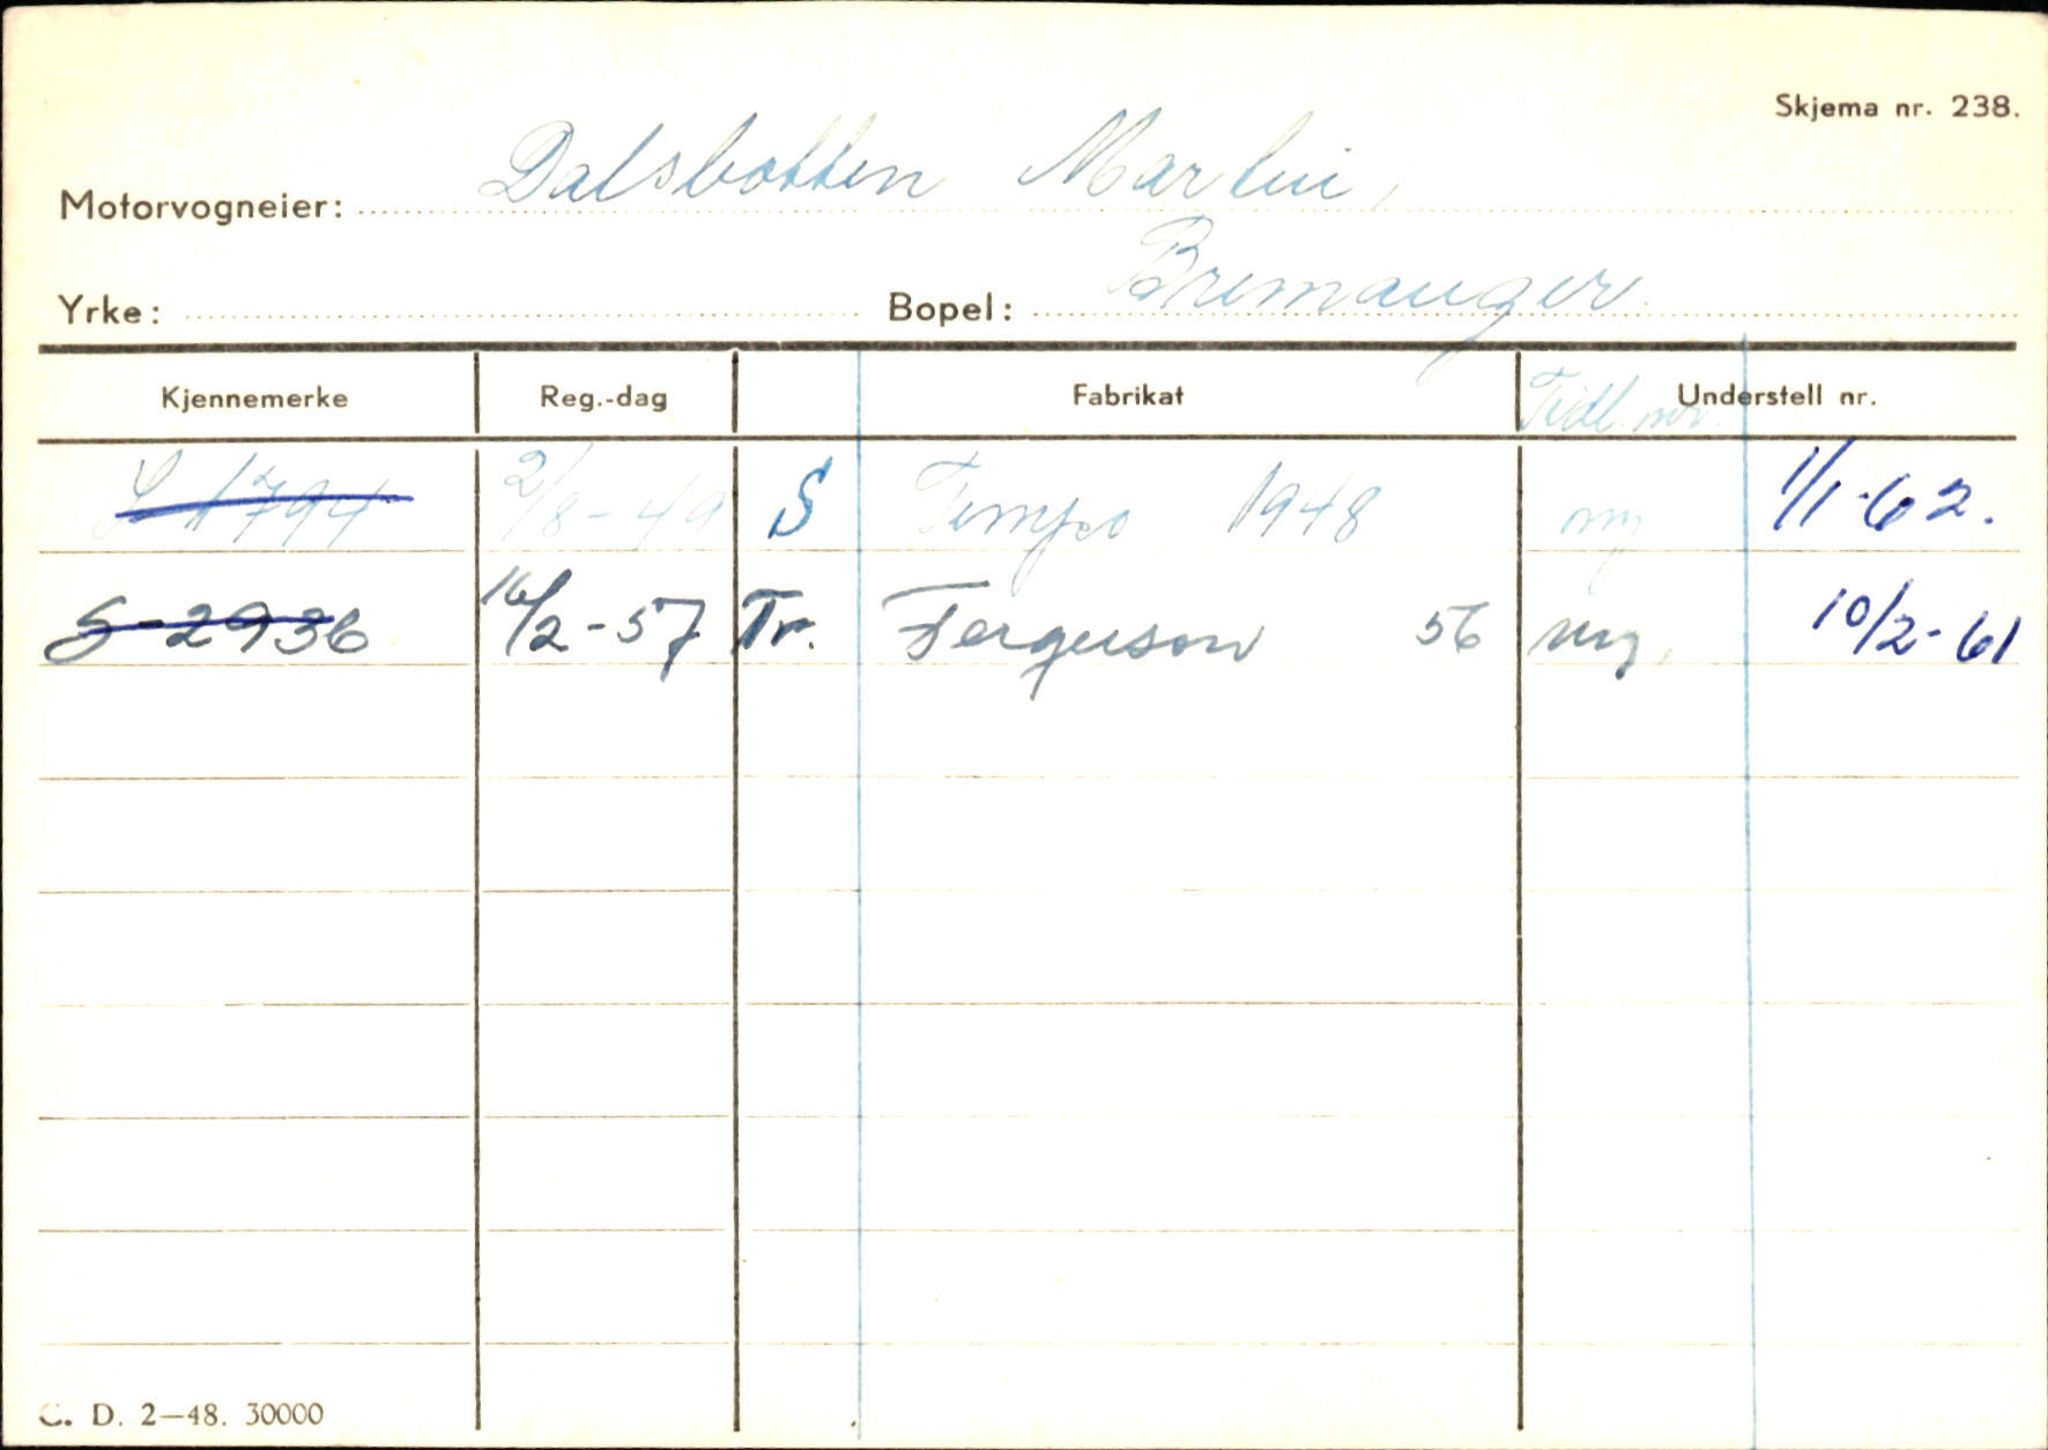 Skjema nr. 238.
Motorvogneier: Dalsbotten Martin,
Yrke: Bopel: Bremanger
Kjennemerke Reg.-dag Fabrikat Tidl. nr. Understell nr.
S 1794 2/8-49 S Tempo 1948 ny 1/1-62.
S-2936 16/2-57 Tr. Ferguson 56 ny, 10/2-61
C. D. 2—48. 30000